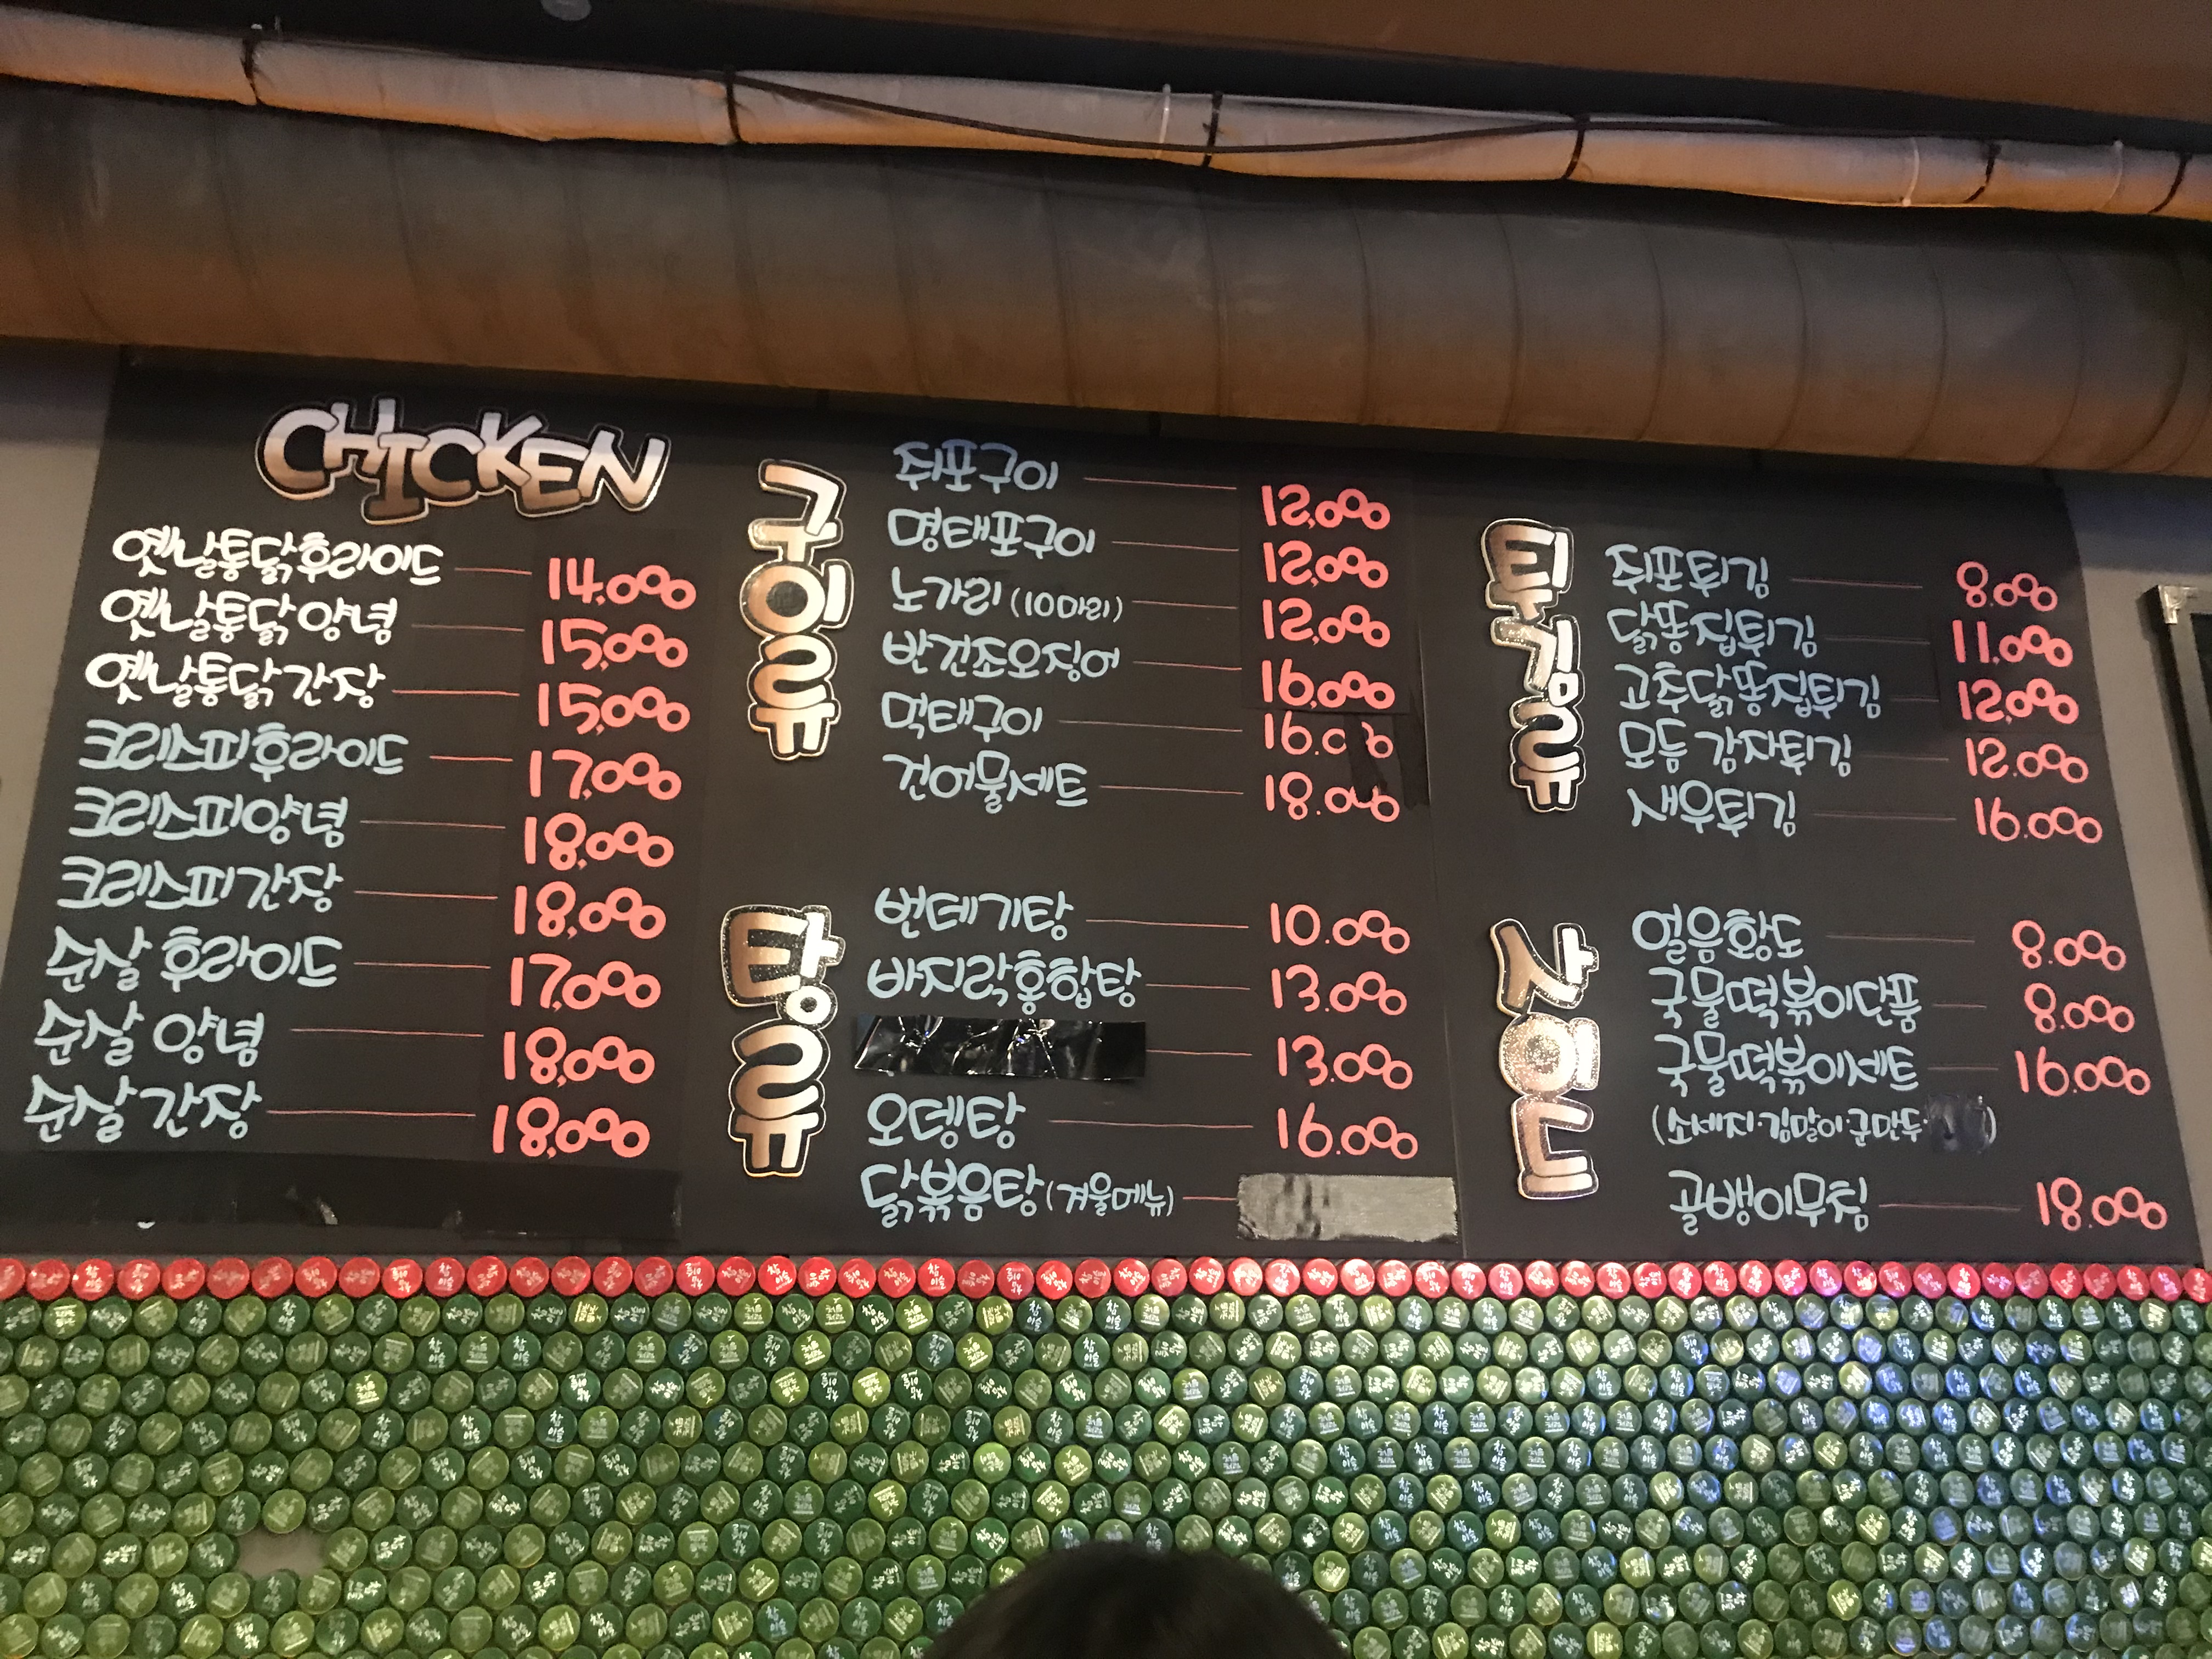 CHICKEN
옛날통닭후라이드 14,000
옛날통닭 양념 15,000
옛날통닭 간장 15,000
크리스피 후라이드 17,000
크리스피양념 18,000
크리스피 간장 18,000
순살 후라이드 17,000
순살 양념 18,000
순살 간장 18,000
구이류
쥐포구이 12,000
명태포구이 12,000
노가리 (10마리) 12,000
반건조오징어 16,000
먹태구이
건어물세트 18.000
탕류
번데기탕 10.000
바지락홍합탕 13.000
13.000
오뎅탕 16.000
닭볶음탕 (겨울메뉴)
튀김류
쥐포튀김 8.000
닭똥집튀김 11,000
고추닭똥집튀김 12,000
모듬 감자튀김 12.000
새우튀김 16.000
사이드
얼음황도 8.000
국물떡볶이단품 8.000
국물떡볶이세트 16.000
(소세지·김말이·군만두· )
골뱅이무침 18.000